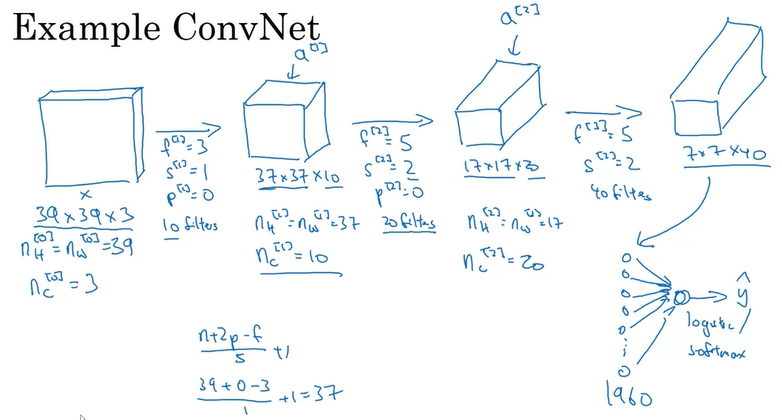 Example ConvNet
a^[1]
a^[2]
x
39 x 39 x 3
n_H^[0] = n_W^[0] = 39
n_C^[0] = 3
f^[1] = 3
s^[1] = 1
p^[1] = 0
10 filters
37 x 37 x 10
n_H^[1] = n_W^[1] = 37
n_C^[1] = 10
f^[2] = 5
s^[2] = 2
p^[2] = 0
20 filters
17 x 17 x 20
n_H^[2] = n_W^[2] = 17
n_C^[2] = 20
f^[3] = 5
s^[2] = 2
40 filters
7 x 7 x 40
ŷ
logistic /
softmax
1960
(n + 2p - f) / s + 1
(39 + 0 - 3) / 1 + 1 = 37